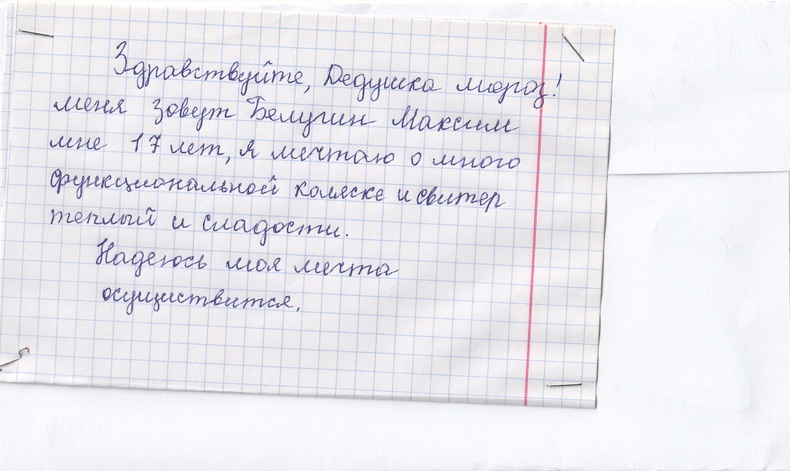 Здравствуйте, Дедушка мороз!
меня зовут Белугин Максим
мне 17 лет, я мечтаю о много
функциональной коляске и свитер
теплый и сладости.
Надеюсь моя мечта
осуществится.